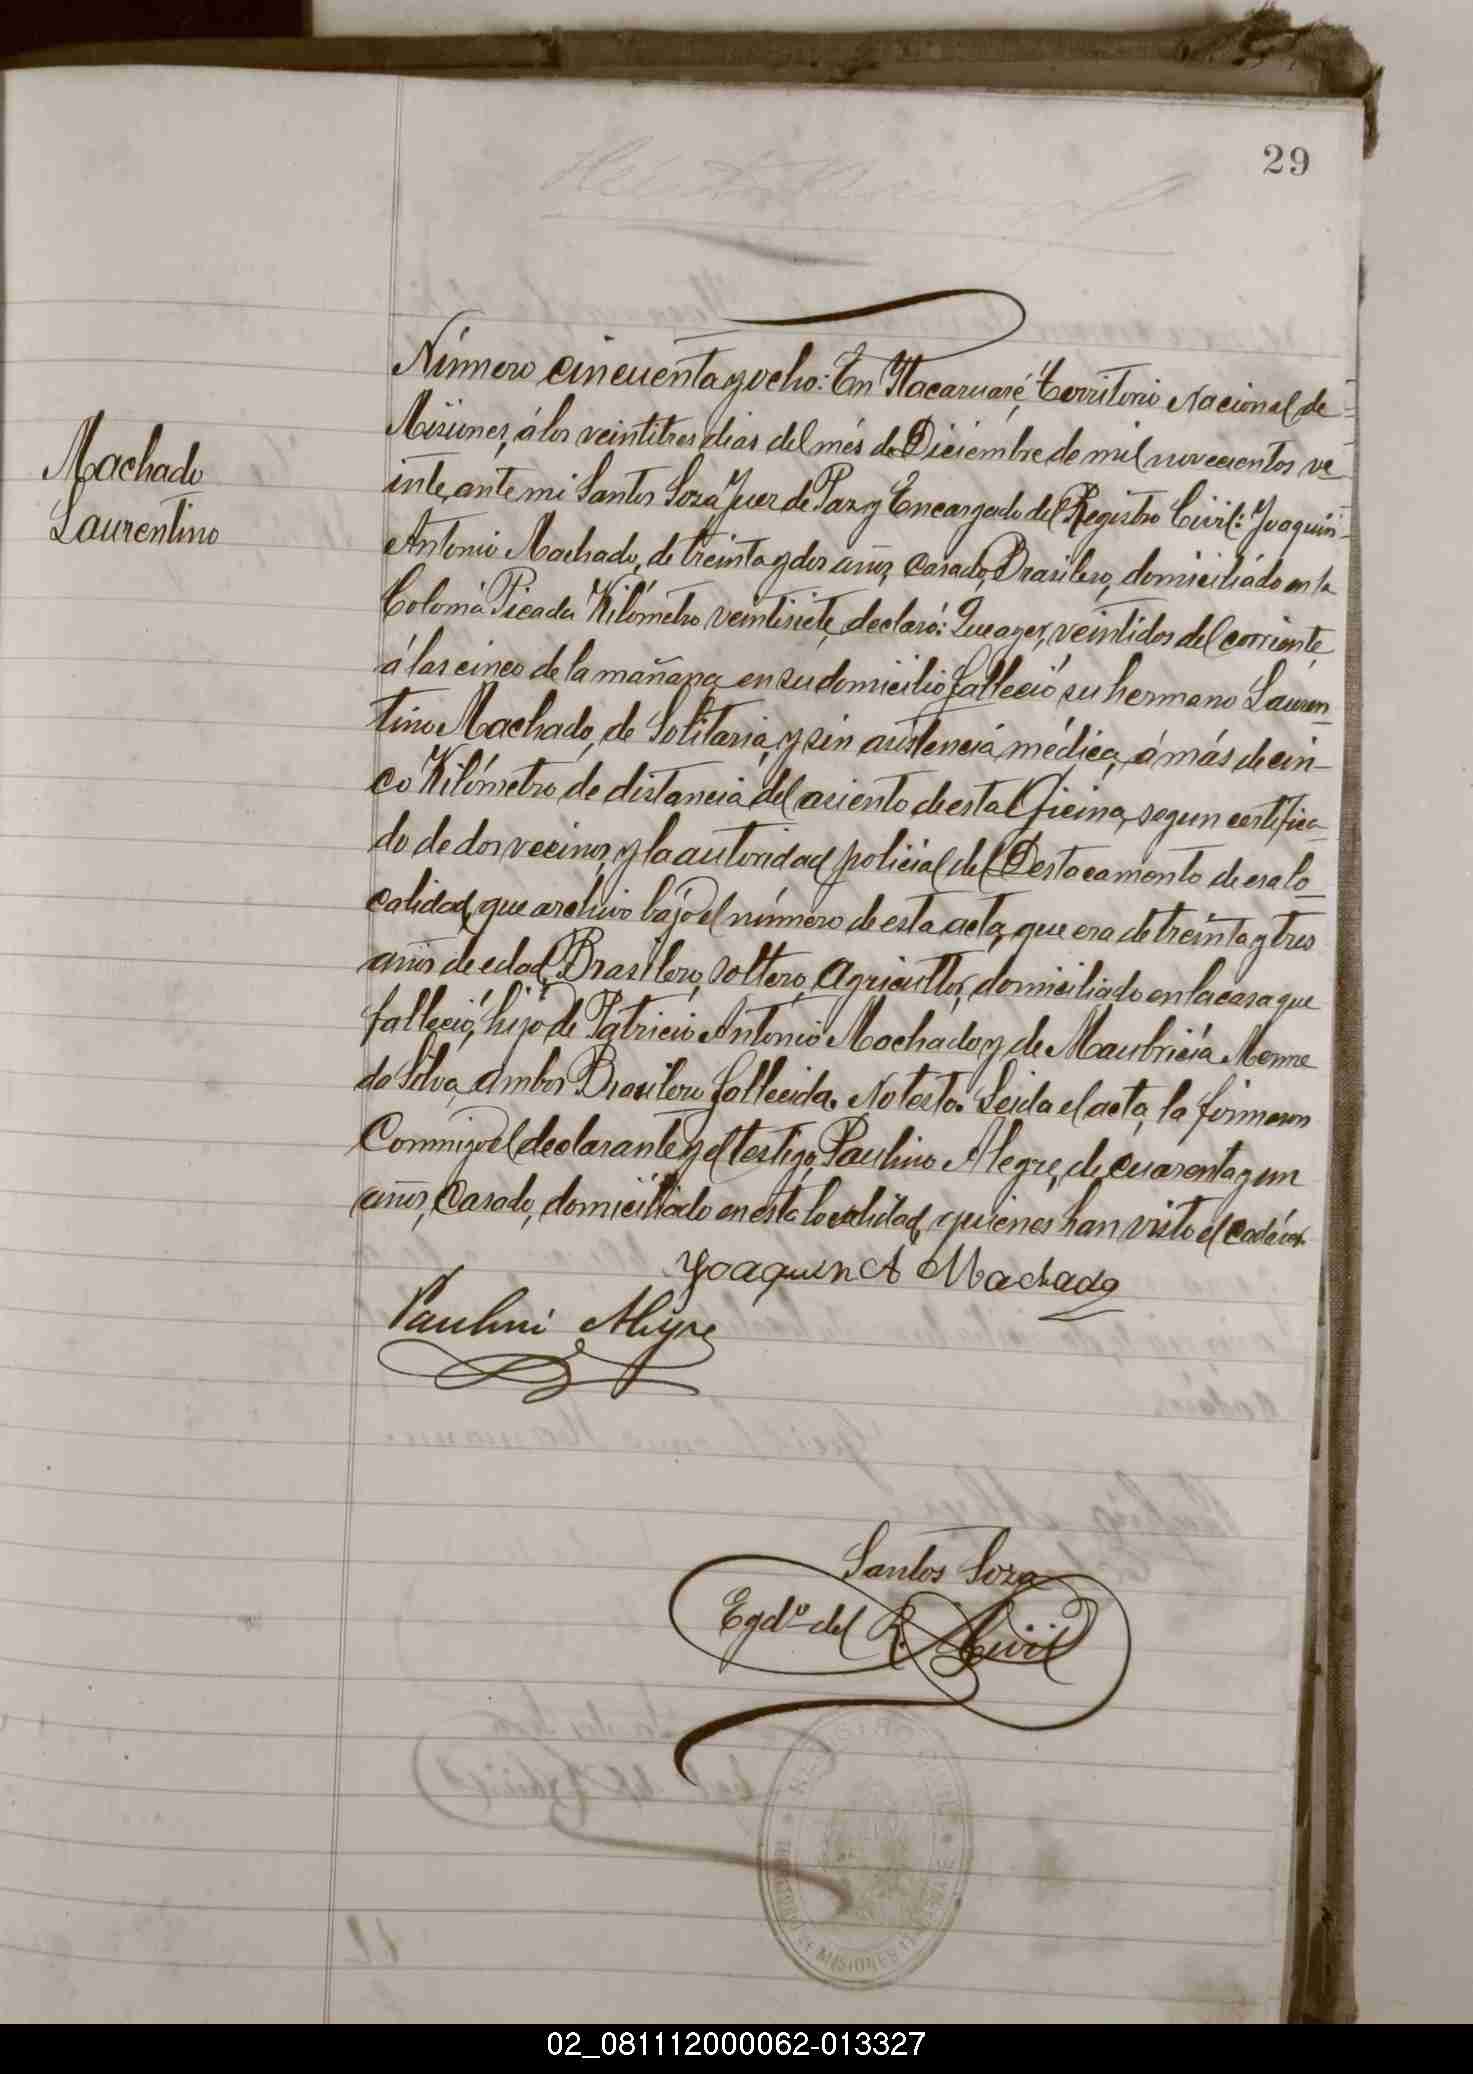 29
Machado
Laurentino
Número cincuenta y ocho: En Itacaruaré, Territorio Nacional de
Misiones, á los veintitres dias del més de Diciembre de mil novecientos ve-
inte, ante mi Santos Soza Juez de Paz y Encargado del Registro Civil: Joaquin
Antonio Machado, de treinta y dos años, casado, Brasilero, domiciliado en la
Colonia Picada Kilómetro veintisiete, declaró: Que ayer, veintidos del corriente
á las cinco de la mañana en su domicilio falleció su hermano Lauren-
tino Machado, de Solitaria, y sin asistencia médica, á más de cin-
co Kilómetro de distancia del asiento de esta Oficina, segun certifica-
do de dos vecinos, y la autoridad policial del Destacamento de esa lo-
calidad, que archivo bajo el número de esta acta, que era de treinta y tres
años de edad, Brasilero, soltero, Agricultor, domiciliado en la casa que
falleció, hijo de Patricio Antonio Machado y de Maubricia
da Silva, ambos Brasilero fallecida. No testó. Leida el acta, la firmaron
Conmigo el declarante y el testigo, Paulino Alegre, de cuarenta y un
años, Casado, domiciliado en esta localidad, quienes han visto el cadáver.
Joaquin A Machado
Paulino Alegre
Santos Soza
Egdo del R. Civil
REGISTRO CIVIL
MISIONES
02_081112000062-013327